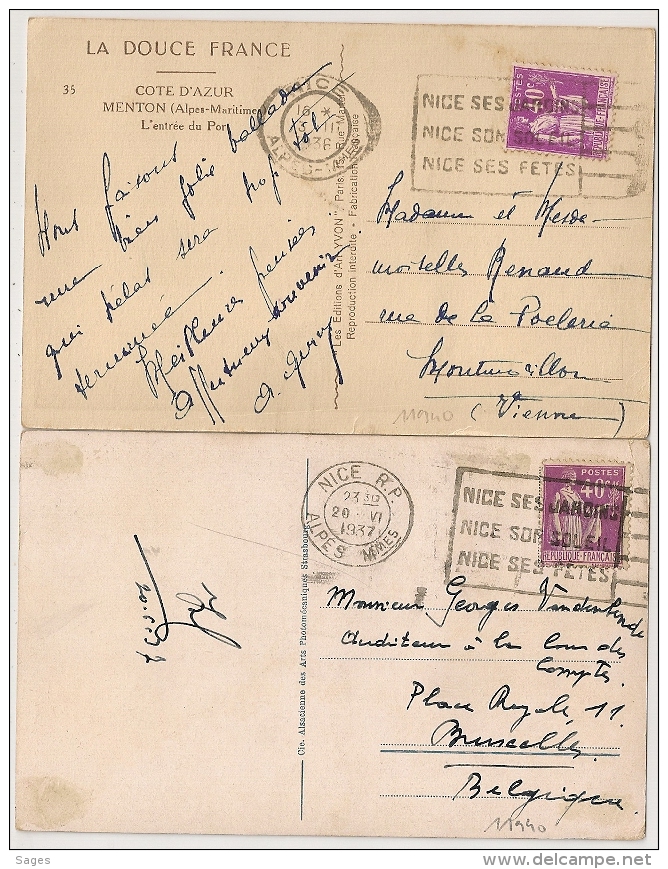 LA DOUCE FRANCE
35
COTE D'AZUR
MENTON (Alpes-Maritimes)
L'entrée du Port
NICE
16 *
1936
ALPES-MMES
POSTES
NICE SES JARDINS
NICE SON SOLEIL
NICE SES FÊTES
Nous faisons
une bien jolie ballade
qui hélas sera trop tôt
terminée.
Meilleures pensées
Affectueux souvenir
Les Editions d'Art "YVON" Paris
Reproduction interdite - Fabrication Française
Madame et Mesde-
moiselles Renaud
rue de la
(Vienne)
11940
NICE R.P.
23 30
20 - VI
1937
ALPES MMES
POSTES
40c
REPUBLIQUE FRANÇAISE
NICE SES JARDINS
NICE SON SOLEIL
NICE SES FÊTES
20.6.37
Cie. Alsacienne des Arts Photomécaniques Strasbourg
Monsieur Georges
Auditeur à la Cour des
Comptes.
Place Royale, 11.
Bruxelles
Belgique.
11940
Sages
delcampe.net